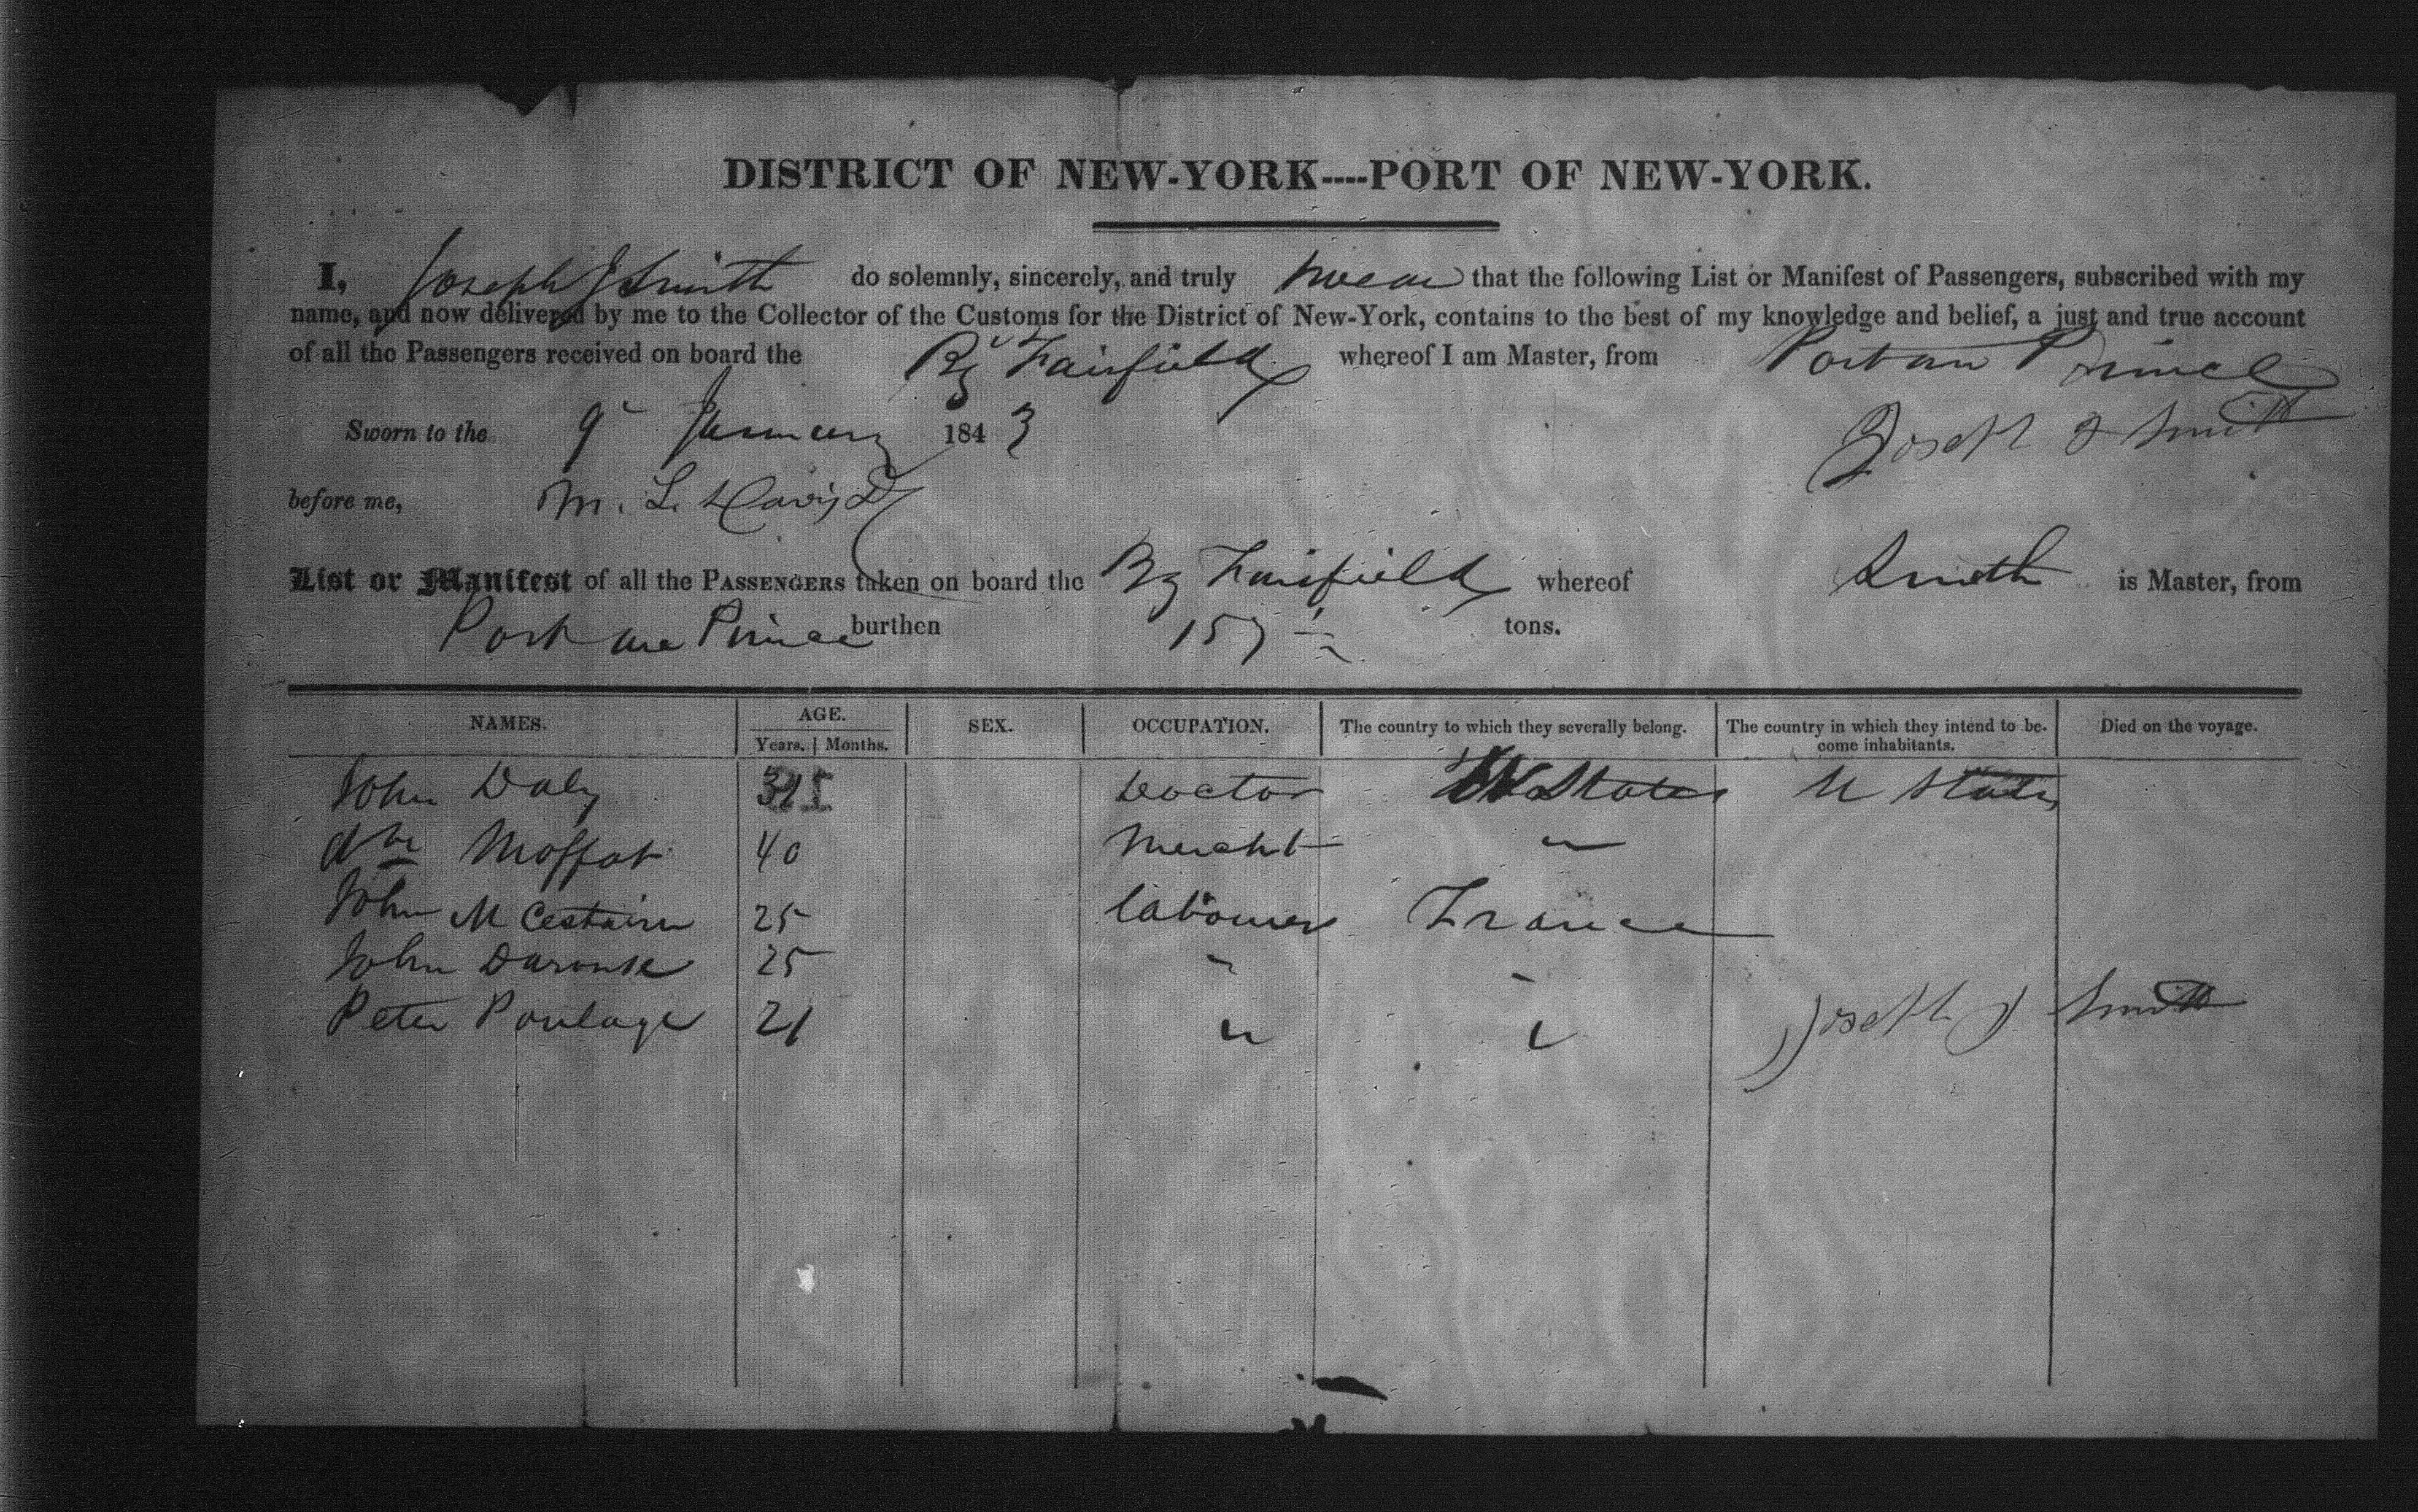 DISTRICT OF NEW-YORK----PORT OF NEW-YORK.
I, Joseph J Smith do solemnly, sincerely, and truly swear that the following List or Manifest of Passengers, subscribed with my
name, and now delivered by me to the Collector of the Customs for the District of New-York, contains to the best of my knowledge and belief, a just and true account
of all the Passengers received on board the Bg Fairfield whereof I am Master, from Port au Prince
Sworn to the 9 January 1843 Joseph J Smith
before me, M. L. Davis
List or Manifest of all the PASSENGERS taken on board the Bg Fairfield whereof Smith is Master, from
Port au Prince burthen 157 tons.
NAMES. AGE. SEX. OCCUPATION. The country to which they severally belong. The country in which they intend to be- Died on the voyage.
Years. Months. come inhabitants.
John Daly Doctor States U States
Moffat 40 Mercht "
John 25 labourer France
John 25 " "
Peter 21 " "
Joseph J Smith